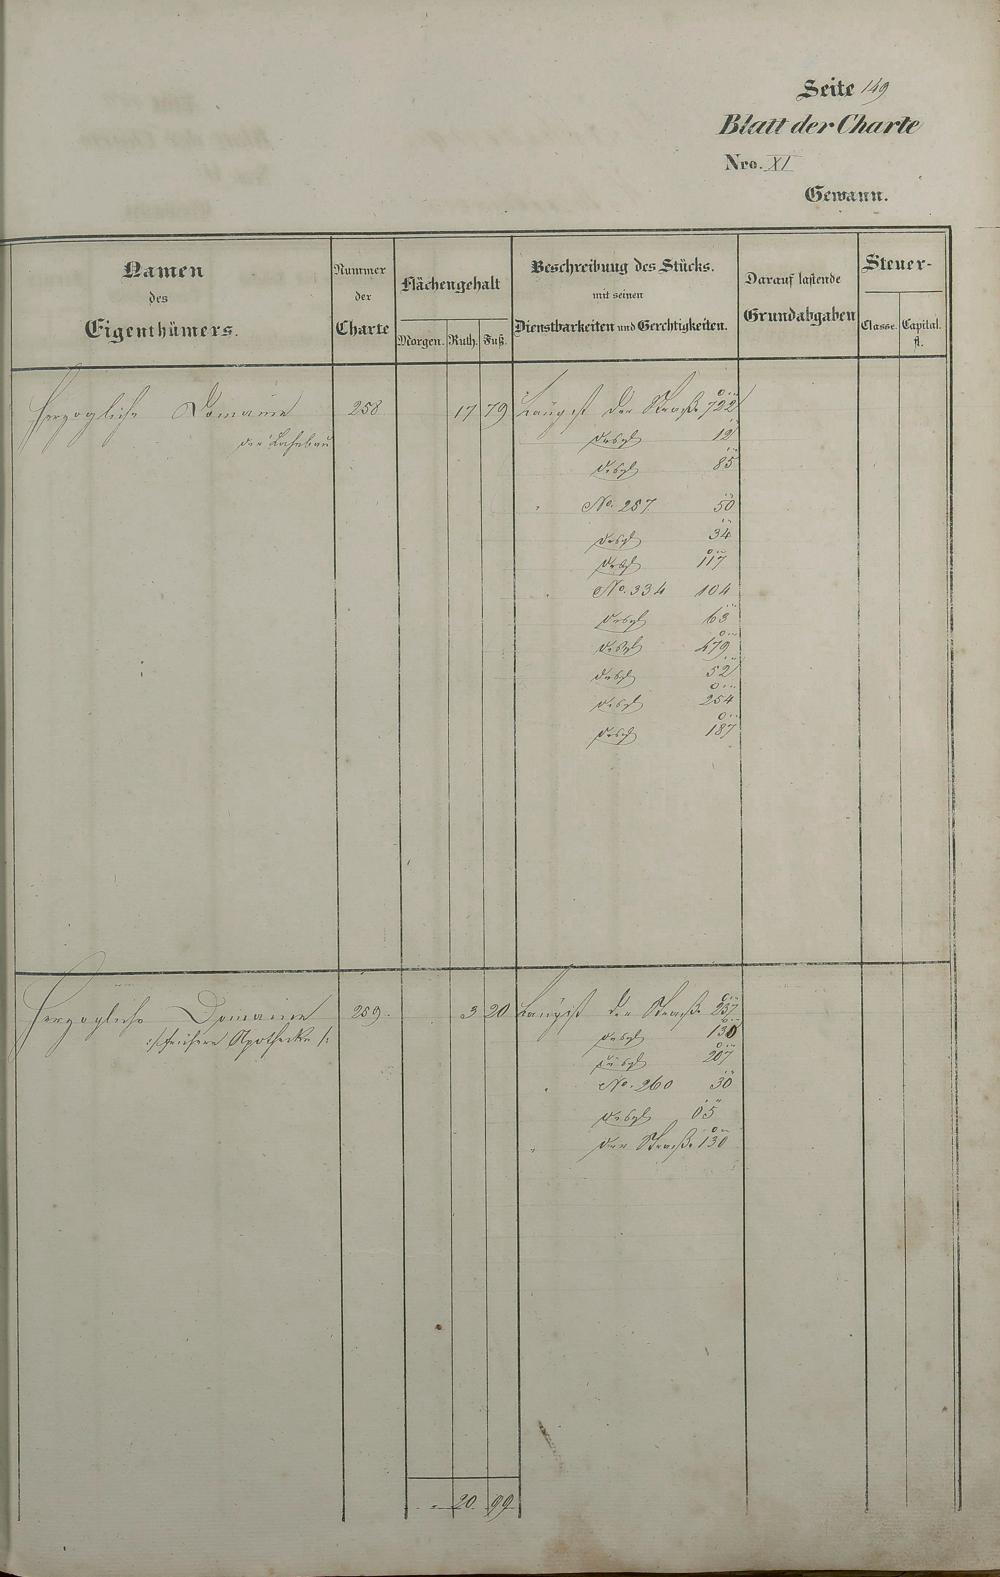 Seite 149
Blatt der Charte
Nro. XI
Gewann.
Namen des Eigenthümers.
Nummer der Charte
Flächengehalt
Morgen. Ruth. Fuß.
Beschreibung des Stücks.
mit seinen
Dienstbarkeiten und Gerechtigkeiten.
Darauf lastende
Grundabgaben
Steuer-
Classe. Capital.
fl.
Herzogliche Domaine 258 17 79 Längst der Straße 722
der Lahnbau desgl 12
desgl 85
" No. 257 50
desgl 34
desgl 117
" No. 334 104
desgl 63
desgl 479
desgl 52
desgl 254
desgl 187
Herzogliche Domaine 259. 3 20 Längst der Straße 237
:/: frühere Apotheke /: desgl 130
desgl 207
" No. 260 30
desgl 05
" der Straße 130
" 20. 99